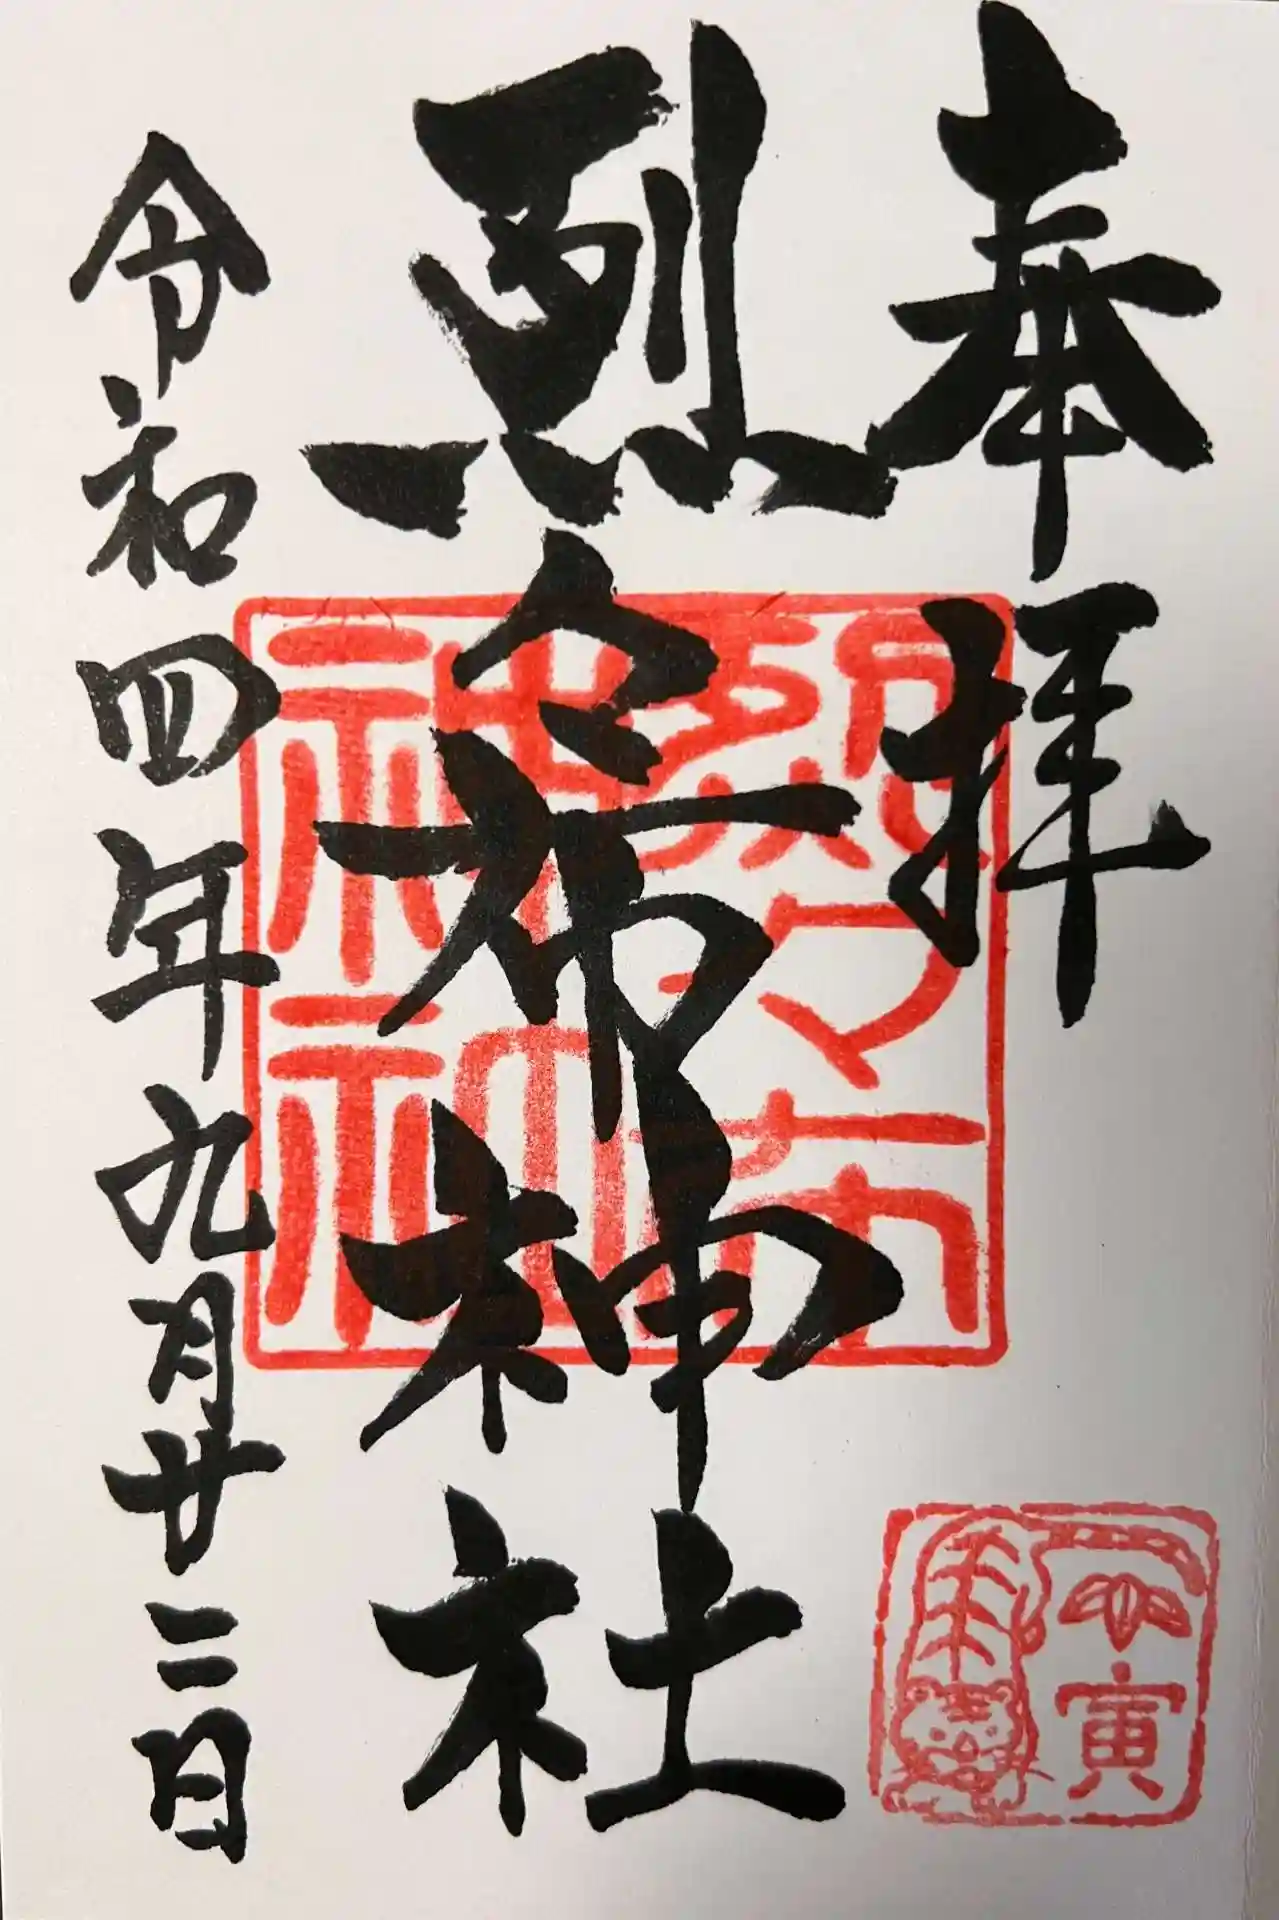 奉拝
烈々布神社
令和四年九月廿二日
烈々布
神社
寅